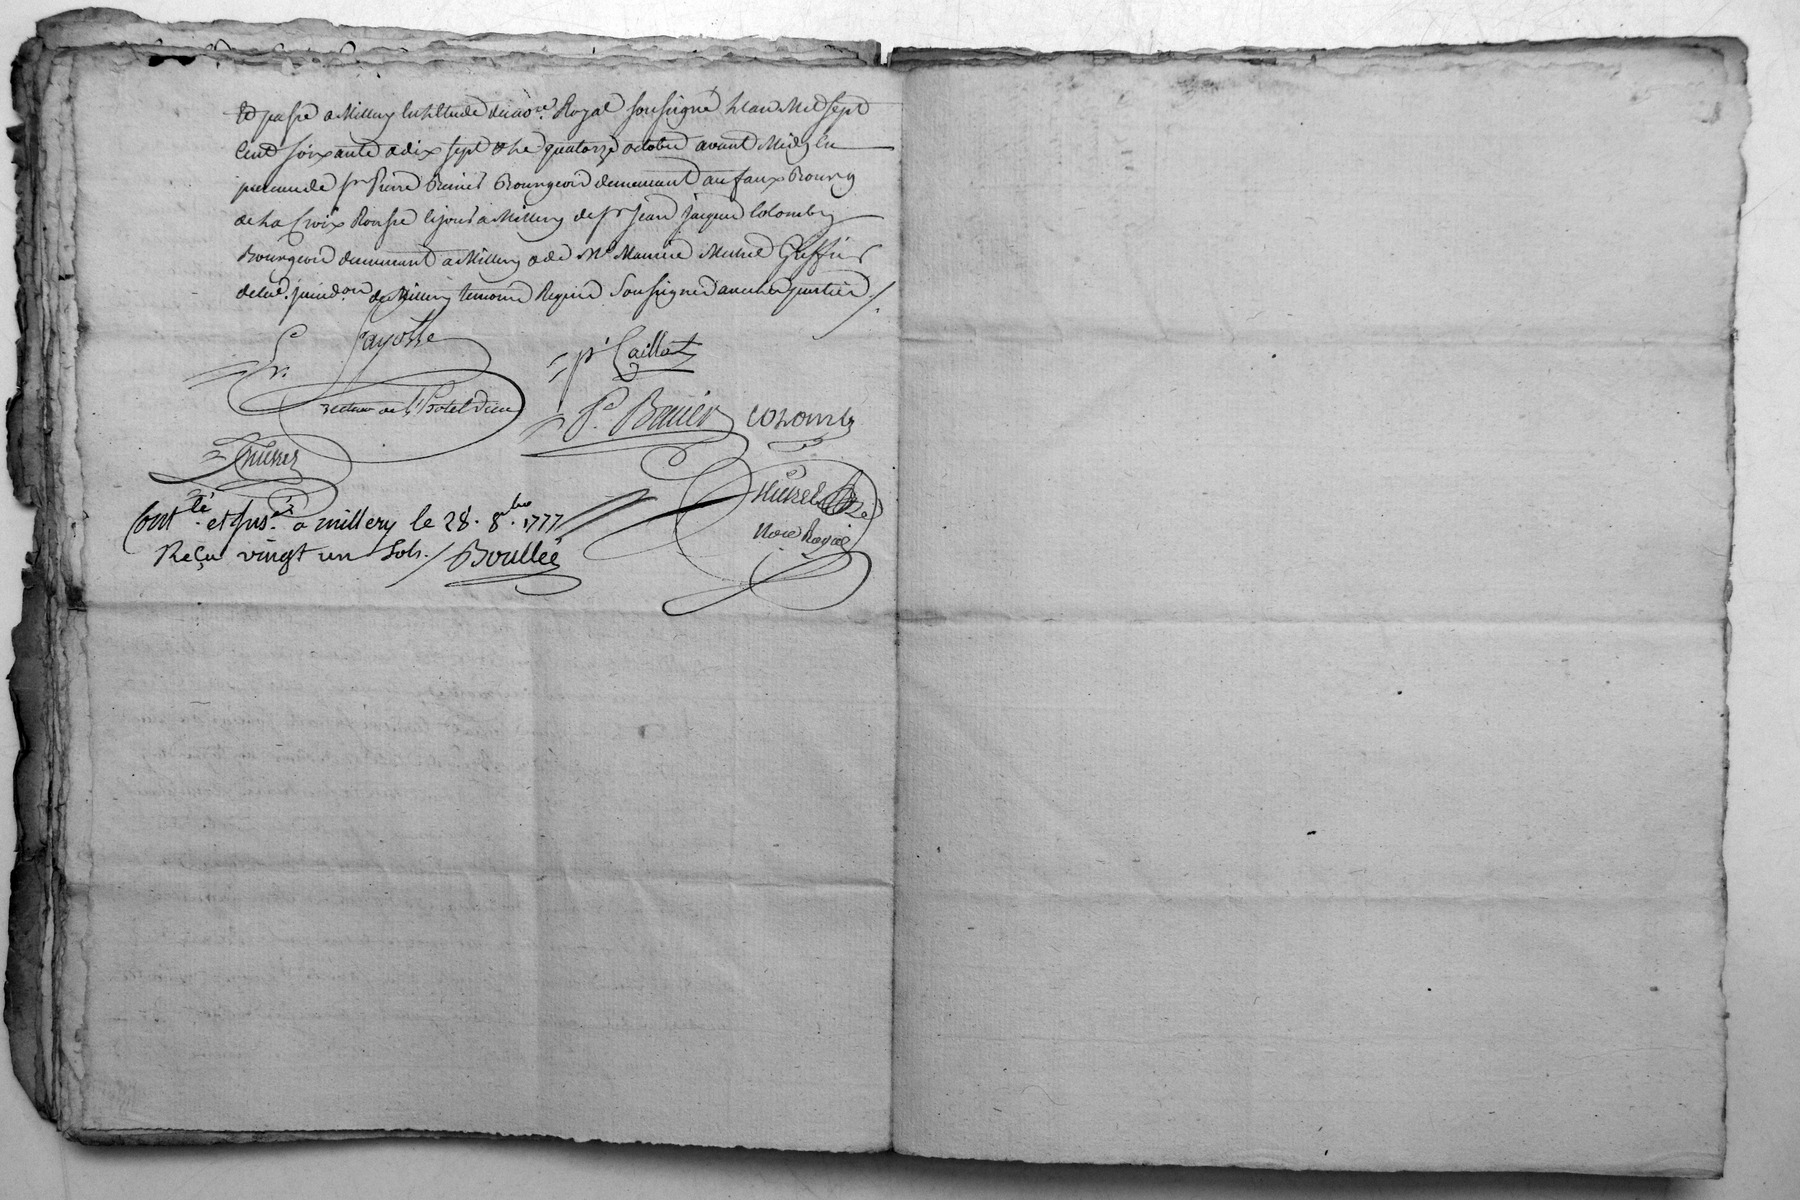 et passé a Millery en l'Etude du no.re Royal soussigné l'an Mil sept
Cent soixante & dix sept & le quatorze octobre avant Midy En
presence de sr Pierre Bourgeois demeurant au faux Bourg
de La Croix Rousse a Millery de sr Jean Jacques Colomby
Bourgeois demeurant a Millery & de Me Maurice Greffier
de lad. jurisd.on de Millery temoins Requis Soussignés avec les parties ./.
Fayolle
recteur de l'hotel Dieu
pr Caillot
P. colomby
Nore Royal
Cont.lé et Ins.é a millery le 28. 8.bre 1777
Reçu vingt un Sols./ Boullée